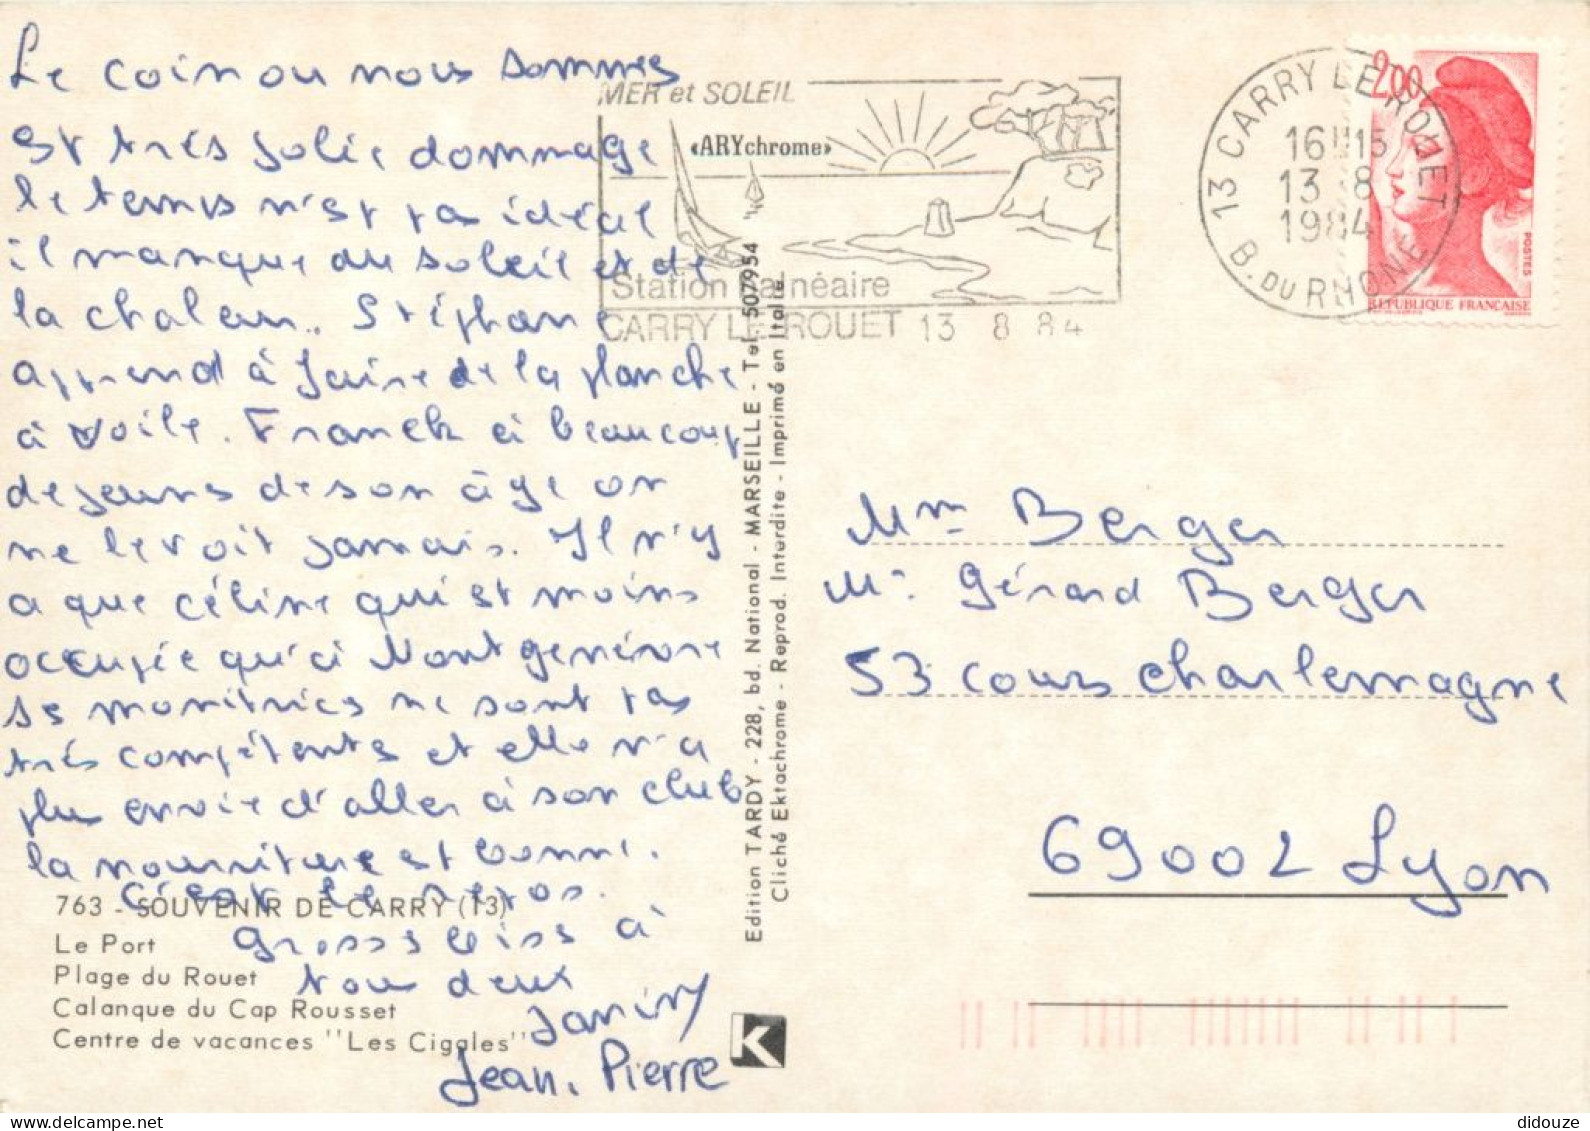 Le coin ou nous sommes
est très jolie dommage
le temps n'est pas idéal
il manque du soleil et de
la chaleur. Stéphane
apprend à faire de la planche
à voile. Franck à beaucoup
de jeuns de son âge on
ne le voit jamais. Il n'y
a que céline qui est moins
occupée qu'à Montgenèvre
ses monitrices ne sont pas
très compétentes et elle n'a
plus envie d'aller à son club
la nourriture est bonne.
c'est le repos.
Grosses bises à
tous deux
Janiny
Jean-Pierre
763 - SOUVENIR DE CARRY (13)
Le Port
Plage du Rouet
Calanque du Cap Rousset
Centre de vacances "Les Cigales"
Edition TARDY - 228, bd. National - MARSEILLE - Tel. 507954
Cliché Ektachrome - Reprod. Interdite - Imprimé en Italie
K
MER et SOLEIL
«ARYchrome»
Station Balnéaire
CARRY LE ROUET 13 8 84
13 CARRY LE ROUET
16H15
13 8
1984
B. DU RHONE
2,00
POSTES
REPUBLIQUE FRANÇAISE
Mme Berger
Mr Gérard Berger
53 cours Charlemagne
69002 Lyon
didouze